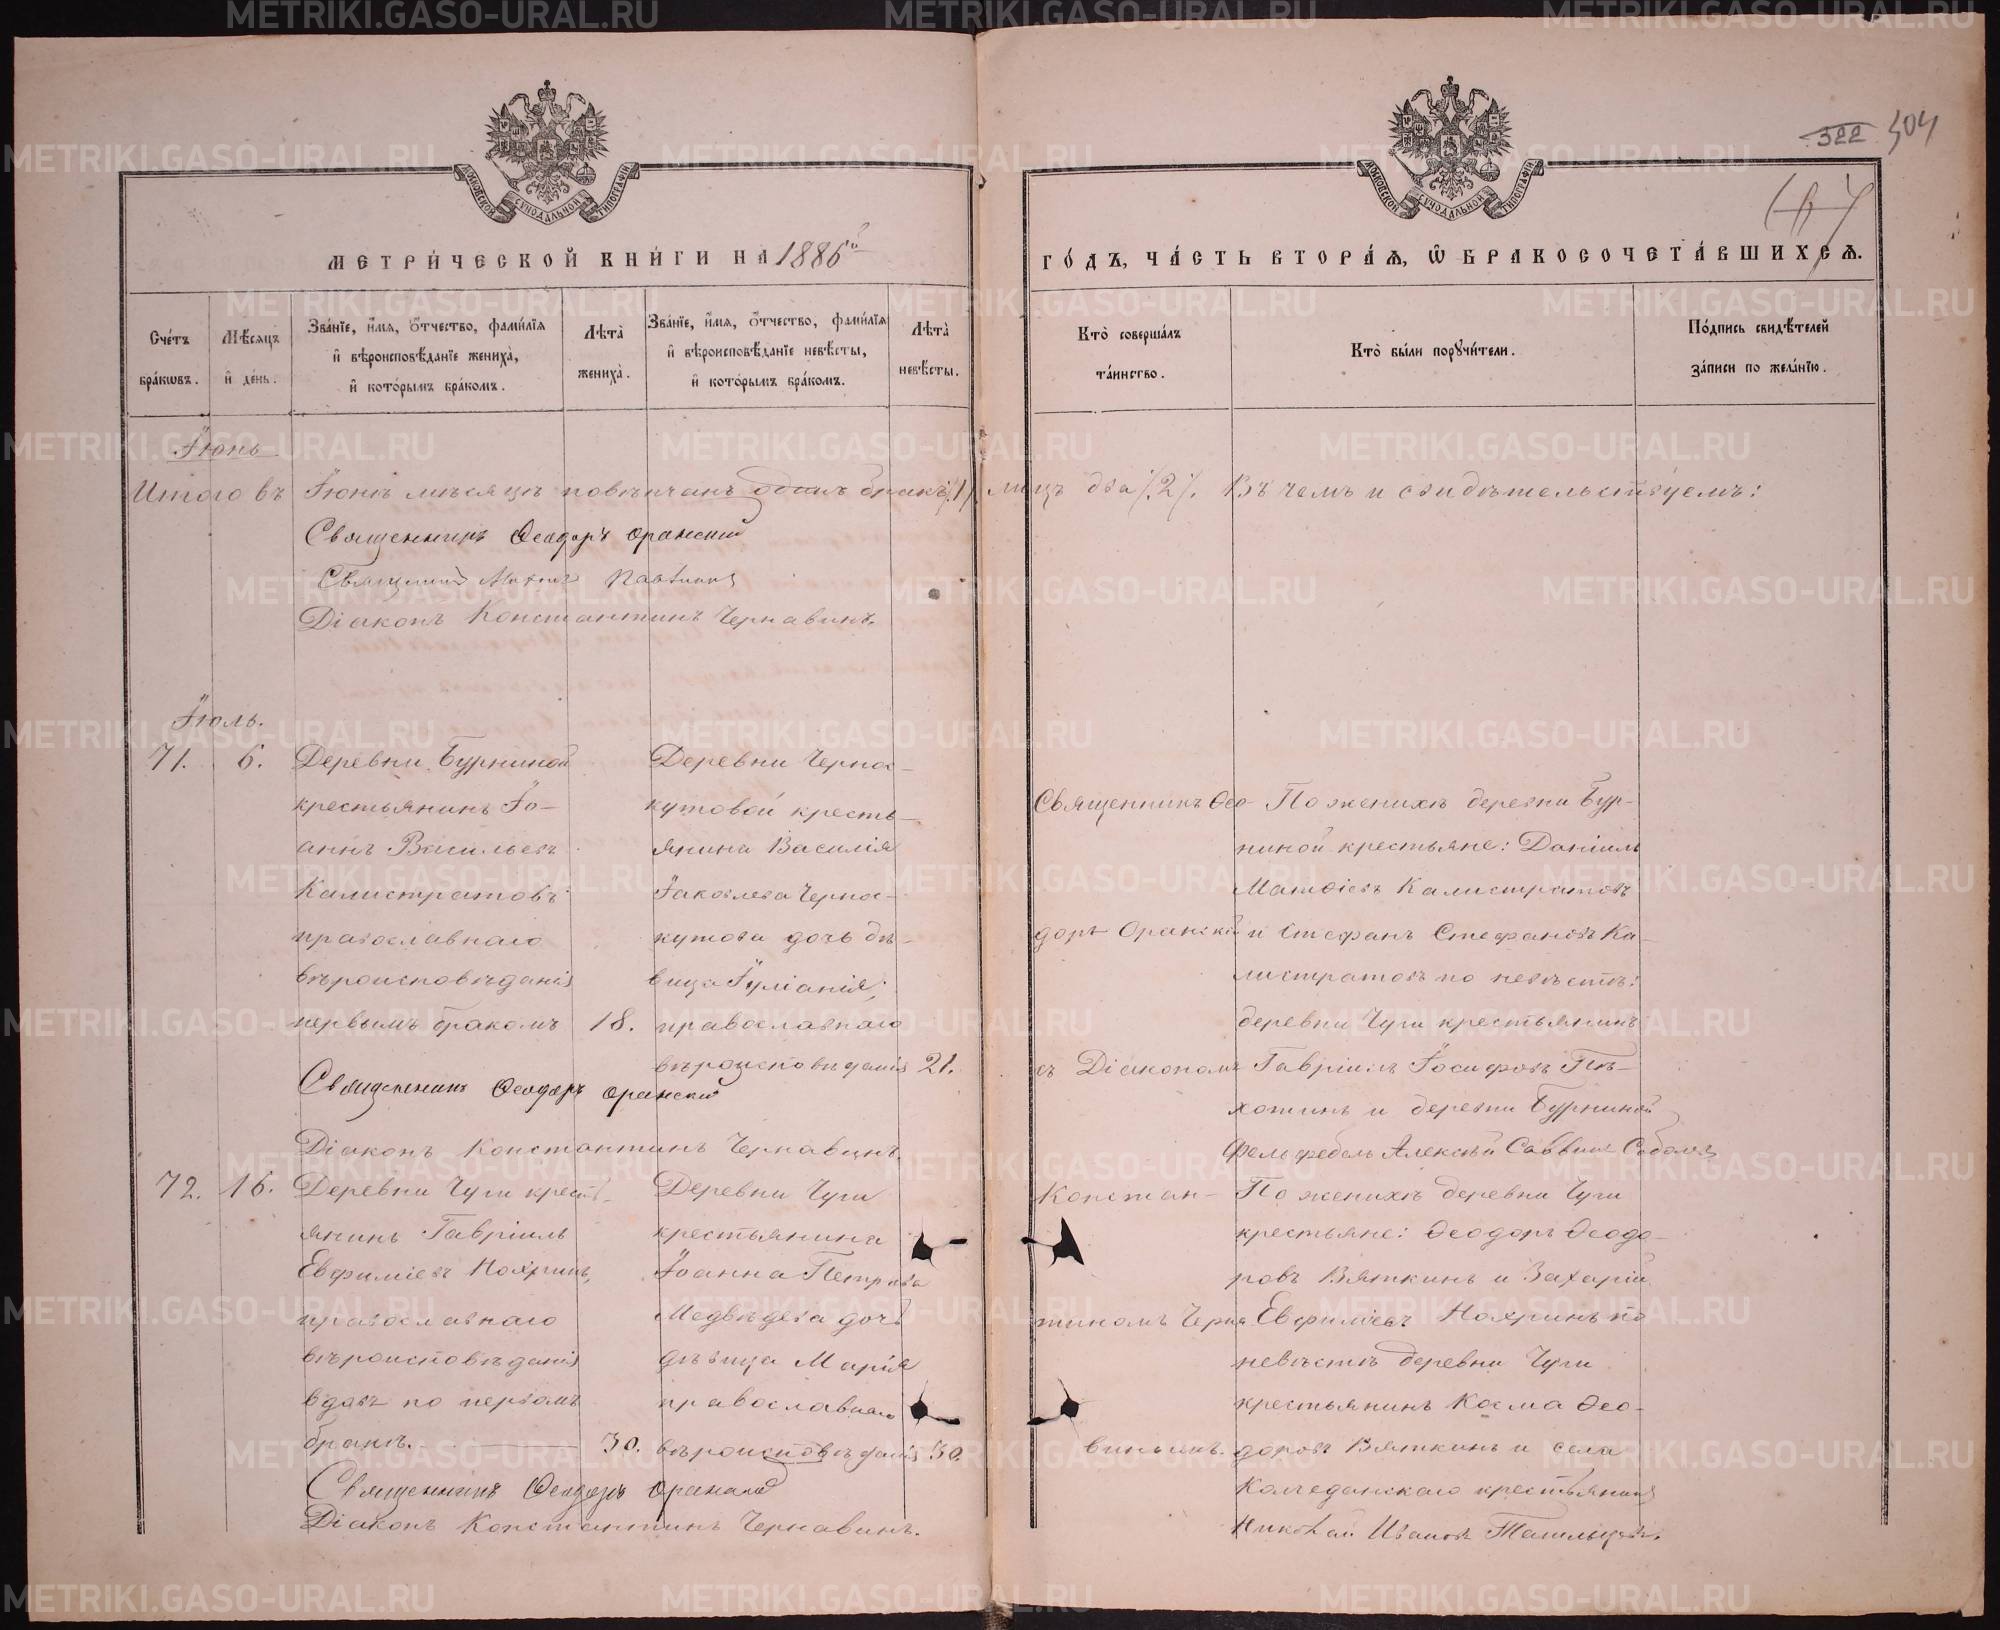 322 304
МОСКОВСКОЙ СѴНОДАЛЬНОЙ ТИПОГРАФІИ
МОСКОВСКОЙ СѴНОДАЛЬНОЙ ТИПОГРАФІИ
МЕТРИ́ЧЕСКОЙ КНИ́ГИ НА 1886й
ГО́ДЪ, ЧА́СТЬ ВТОРА́Ѧ, Ѿ БРАКОСОЧЕТА́ВШИХСѦ.
Сче́тъ бра́кѡвъ.
Мѣ́сѧцъ и҆ де́нь.
Зва́нїе, и҆́мѧ, ѻ҆́тчество, фами́лїѧ и҆ вѣроисповѣ́данїе жениха̀, и҆ кото́рымъ бра́комъ.
Лѣ́та̀ жениха̀.
Зва́нїе, и҆́мѧ, ѻ҆́тчество, фами́лїѧ и҆ вѣроисповѣ́данїе невѣ́сты, и҆ кото́рымъ бра́комъ.
Лѣ́та̀ невѣ́сты.
Кто̀ соверша́лъ та́инство.
Кто̀ бы́ли порꙋчи́тели.
По́дпись свидѣ́телей за́писи по жела́нїю.
Іюнь
Итого въ Іюнѣ мѣсяцѣ повѣнчанъ одинъ бракъ /1/, лицъ два /2/. Въ чемъ и свидѣтельствуемъ:
Священникъ Ѳеодоръ Оранскій
Діаконъ Константинъ Чернавинъ.
Іюль.
71. 6. Деревни Бурниной
крестьянинъ Іо-
аннъ Васильевъ
Калистратовъ
православнаго
вѣроисповѣданія
первымъ бракомъ 18.
Деревни Черно-
кутовой кресть-
янина Василія
Іаковлева Черно-
кутова дочь дѣ-
вица Іуліанія,
православнаго
вѣроисповѣданія 21.
Священникъ Ѳео-
доръ Оранскій
съ Діакономъ
Констан-
тиномъ Черна
винымъ.
По женихѣ деревни Бур-
ниной крестьяне: Даніилъ
Матѳіевъ Калистратовъ
и Стефанъ Стефановъ Ка-
листратовъ по невѣстѣ:
деревни Чуги крестьянинъ
Гавріилъ Іосифовъ Пѣ-
хотинъ и деревни Бурниной
Фельфебель Алексѣй Саввинъ
Священникъ Ѳеодоръ Оранскій
Діаконъ Константинъ Чернавинъ.
72. 16. Деревни Чуги кресть-
янинъ Гавріилъ
Евфиміевъ Нояринъ,
православнаго
вѣроисповѣданія
вдовъ по первомъ
бракѣ. 30.
Деревни Чуги
крестьянина
Іоанна Петрова
Медвѣдева дочь
дѣвица Марія
православнаго
вѣроисповѣданія 30.
По женихѣ деревни Чуги
крестьяне: Ѳеодоръ Ѳеодо-
ровъ Вяткинъ и Захарій
Евфиміевъ Нояринъ по
невѣстѣ деревни Чуги
крестьянинъ Косма Ѳео-
доровъ Вяткинъ и села
Колчеданскаго крестьянинъ
Николай Ивановъ
Священникъ Ѳеодоръ Оранскій
Діаконъ Константинъ Чернавинъ.
METRIKI.GASO-URAL.RU